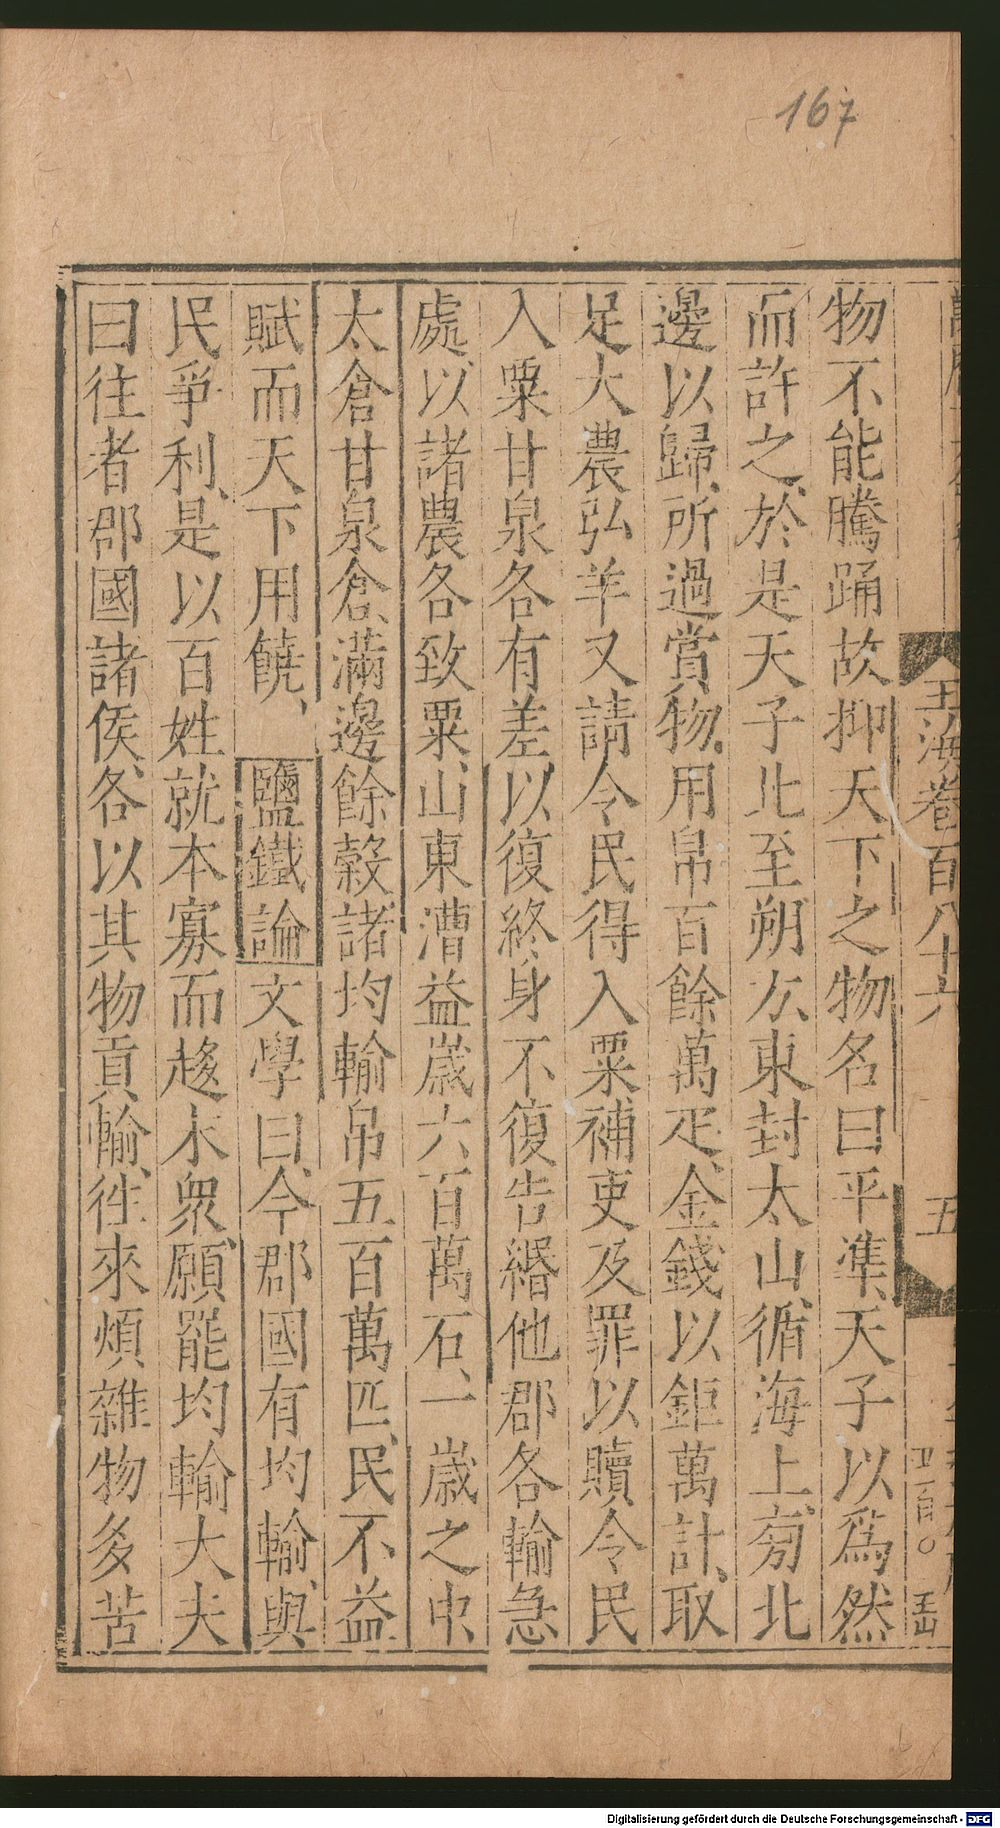 167
玉海卷百八十六
五
物不能騰踊故抑天下之物名曰平準、天子以爲然
而許之、於是天子北至朔方、東封太山、循海上、旁北
邊以歸、所過賞物、用帛百餘萬疋、金錢以鉅萬計、取
足大農弘羊又請令民得入粟補吏及罪以贖令民
入粟甘泉各有差、以復終身不復告緡他郡各輸急
處、以諸農各致粟、山東漕益歲六百萬石、一歲之中
太倉甘泉倉滿邊餘榖諸均輸帛五百萬匹、民不益
賦而天下用饒、鹽鐵論文學曰、今郡國有均輸、與
民爭利、是以百姓就本寡而趍末衆、願罷均輸大夫
曰往者郡國諸侯、各以其物貢輸、徃來煩雜物多苦
Digitalisierung gefördert durch die Deutsche Forschungsgemeinschaft - DFG